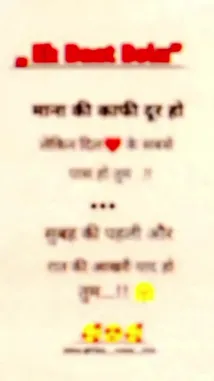 माना की काफी दूर हो
लेकिन दिल❤️ के सबसे
पास हो तुम ..!!
...
सुबह की पहली और
रात की आखरी याद हो
तुम...!!